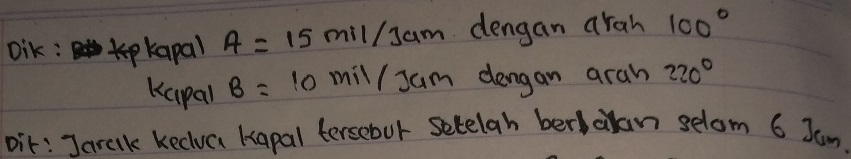 Dik : kapal A = 15 mil/Jam dengan arah 100°
Kapal B = 10 mil/Jam dengan arah 220°
Dit : Jarak kedua kapal tersebut setelah berjalan selam 6 Jam.